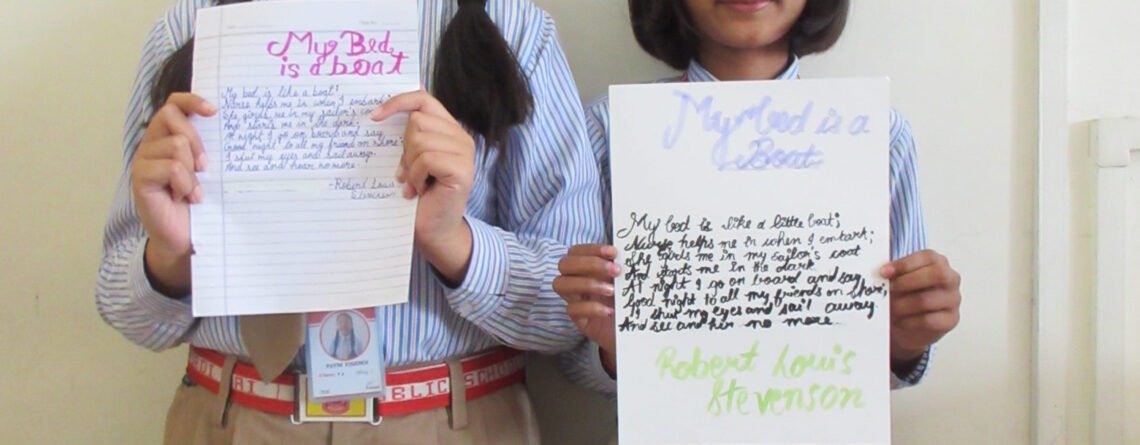 My Bed
is a boat
My bed is like a boat;
Nurse helps me in when I embark;
She girds me in my sailor's coat
And starts me in the dark.
At night I go on board and say,
Good night to all my friend on shore;
I shut my eyes and sail away.
And see and hear no more.
- Robert Louis
Stevenson
My bed is a
Boat
My bed is like a little boat;
Nurse helps me in when I embark;
She girls me in my sailor's coat
And starts me in the dark
At night I go on board and say,
Good night to all my friends on shore;
I shut my eyes and sail away.
And see and her no more
Robert Louis
Stevenson
PUBLIC SCHOOL